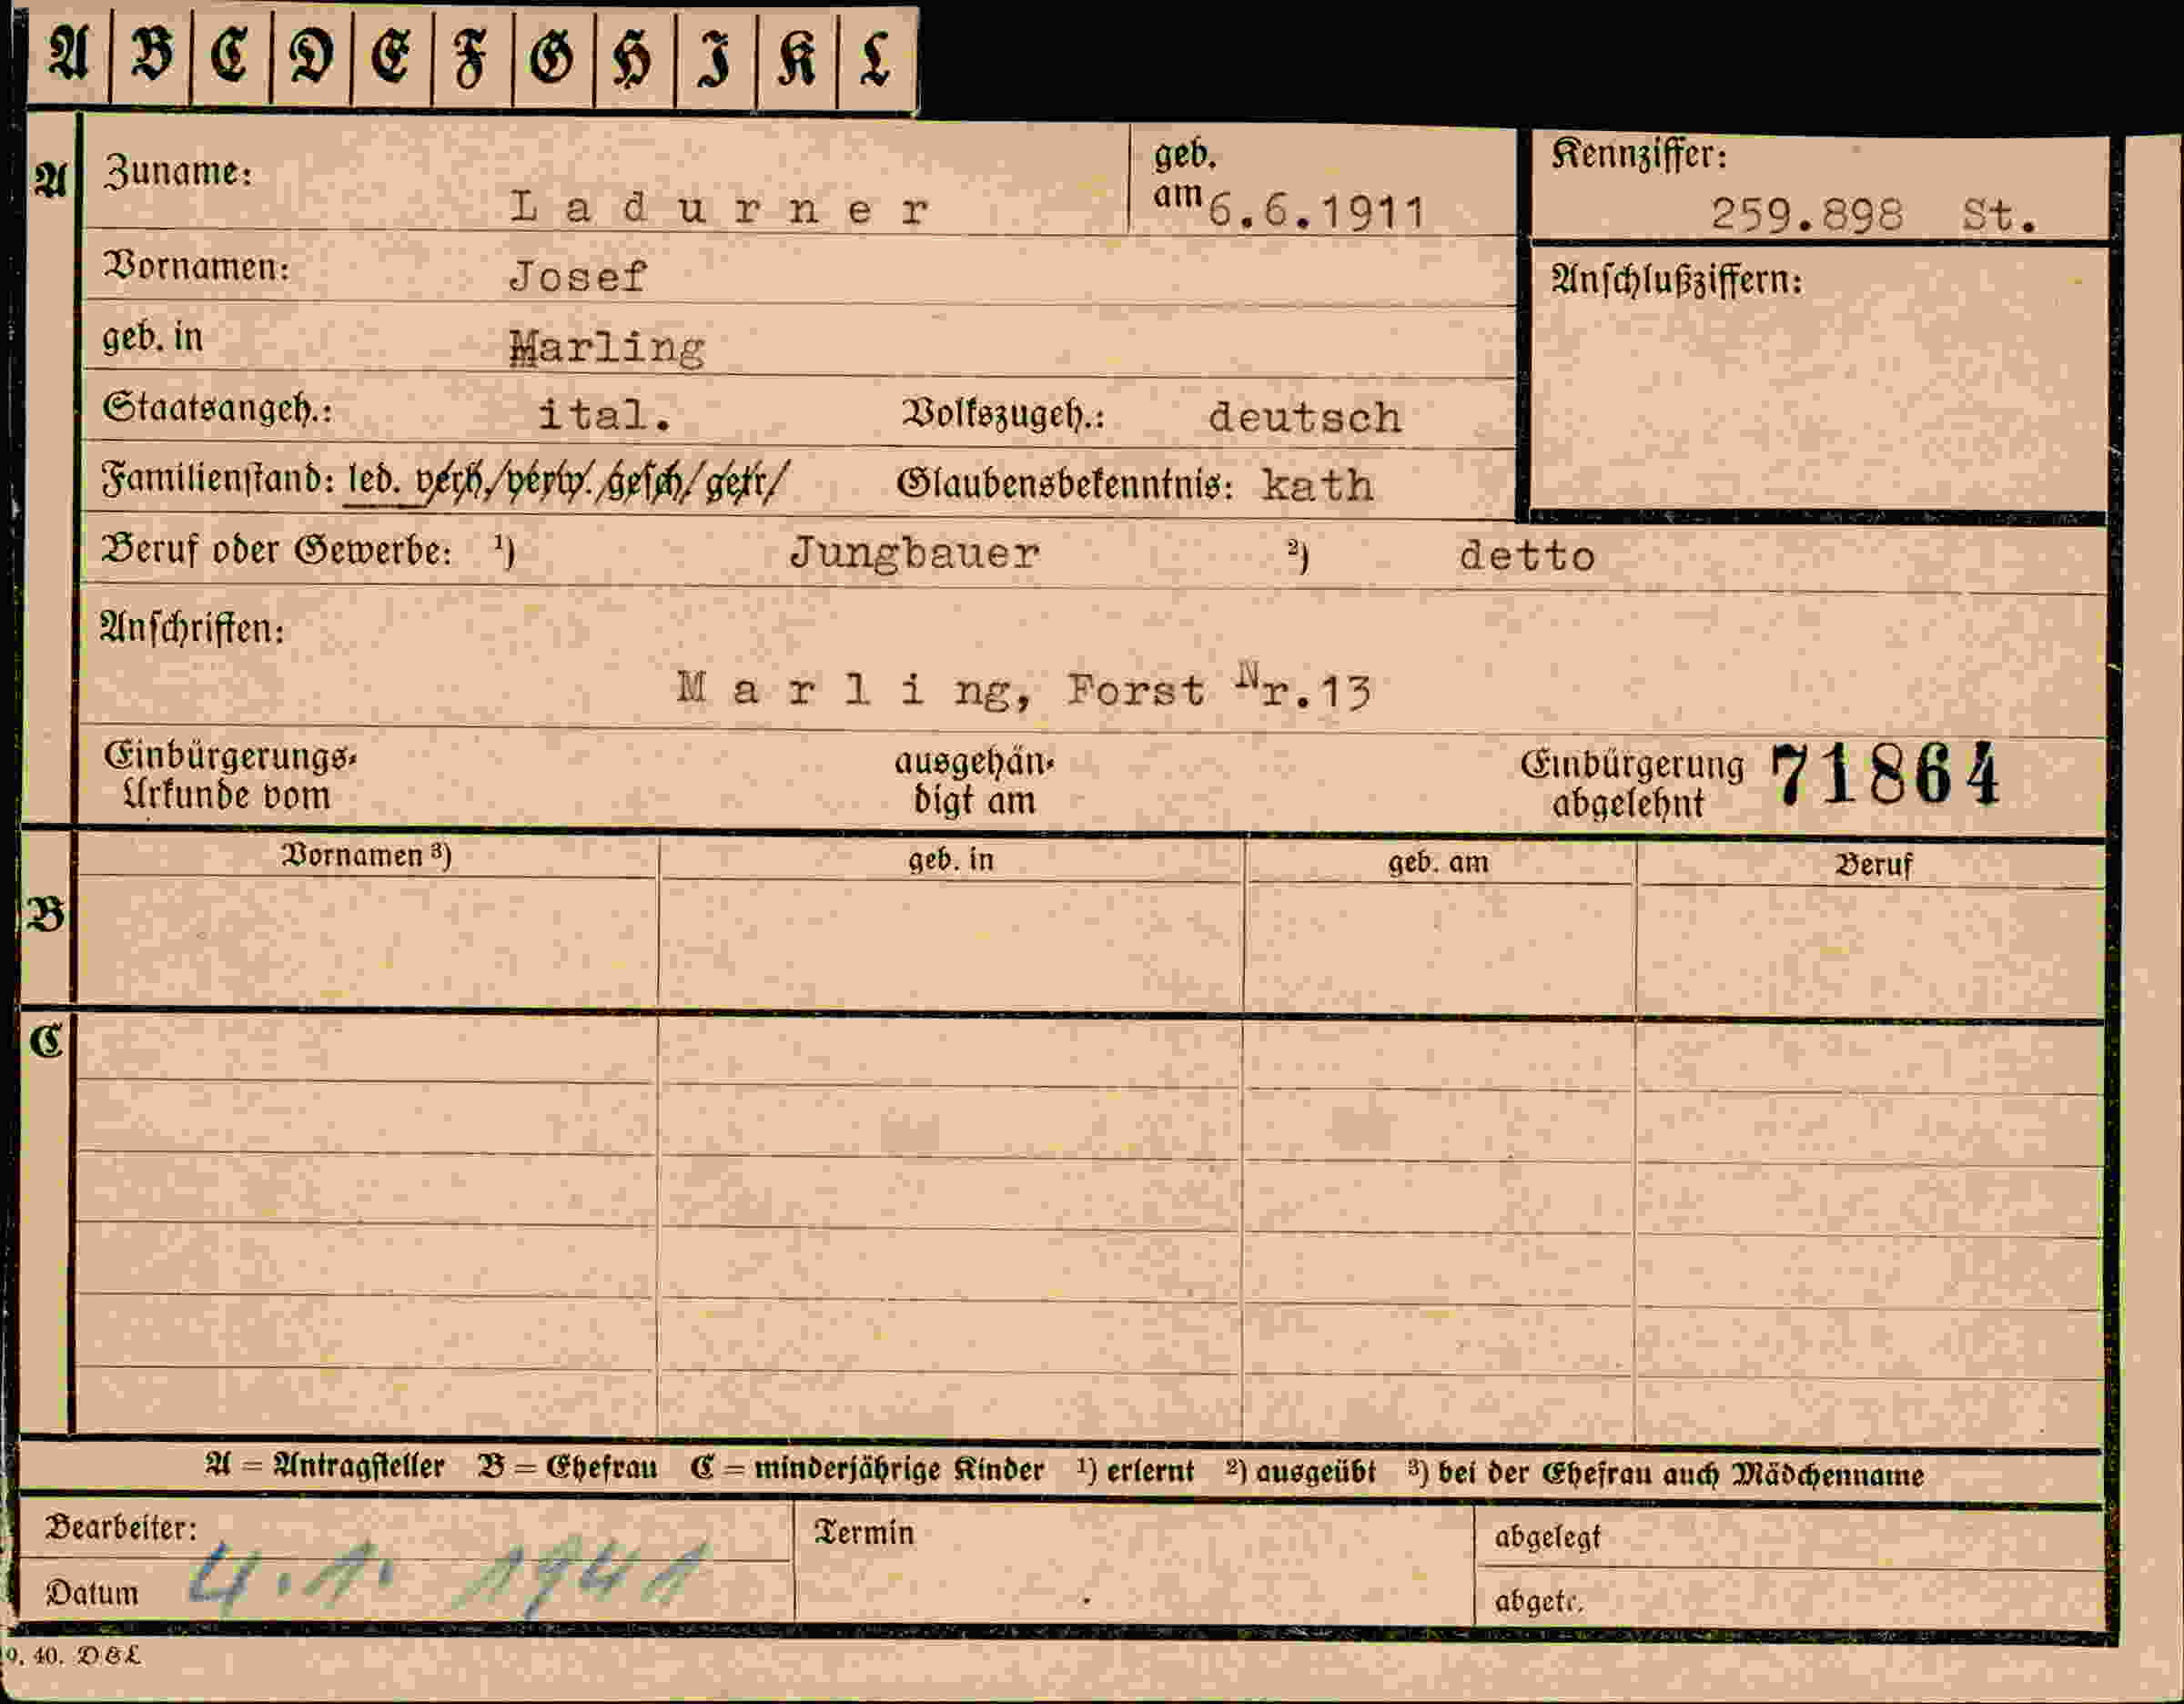 A B C D E F G H I K L
A Zuname: Ladurner geb. am 6.6.1911 Kennziffer: 259.898 St.
Vornamen: Josef Anschlußziffern:
geb. in Marling
Staatsangeh.: ital. Volkszugeh.: deutsch
Familienstand: led. verh./verw./gesch/getr/ Glaubensbekenntnis: kath
Beruf oder Gewerbe: ¹) Jungbauer ²) detto
Anschriften:
Marling, Forst Nr.13
Einbürgerungs- ausgehän- Einbürgerung 71864
Urkunde vom digt am abgelehnt
Vornamen ³) geb. in geb. am Beruf
B
C
A = Antragsteller B = Ehefrau C = minderjährige Kinder ¹) erlernt ²) ausgeübt ³) bei der Ehefrau auch Mädchenname
Bearbeiter: Termin abgelegt
Datum 4.1. 1941 abgetr.
9. 40. D&L